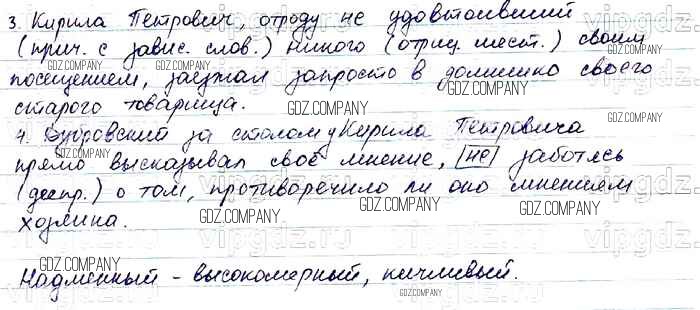 3. Кирила Петрович, отроду не удостоивший
(прич. с завис. слов.) никого (отриц. мест.) своим
посещением, заезжал запросто в домишко своего
старого товарища.
4. Дубровский за столом у Кирила Петровича
прямо высказывал своё мнение, не заботясь
(деепр.) о том, противоречило ли оно мнениям
хозяина.
Надменный - высокомерный, кичливый.
GDZ.COMPANY
GDZ.COMPANY
GDZ.COMPANY
GDZ.COMPANY
GDZ.COMPANY
GDZ.COMPANY
GDZ.COMPANY
GDZ.COMPANY
GDZ.COMPANY
GDZ.COMPANY
GDZ.COMPANY
GDZ.COMPANY